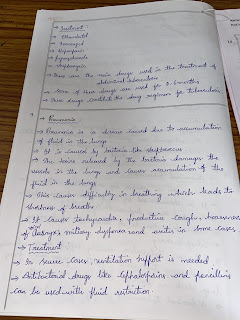 → Treatment
→ Ethambutol
→ Isoniazid
→ Rifampicin
→ Pyrazinamide
→ Streptomycin
→ These are the main drugs used in the treatment of
abdominal tuberculosis
→ Some of these drugs are used for 2-6 months
→ These drugs constitute the drug regimen for tuberculosis
→ Pneumonia
→ Pneumonia is a disease caused due to accumulation
of fluid in the lungs
→ It is caused by bacteria like streptococcus
→ The toxins released by the bacteria damages the
vessels in the lungs and causes accumulation of the
fluid in the lungs
→ This causes difficulty in breathing which leads to
shortness of breath
→ It causes tachycardia, productive cough, hoarseness
of voice, dyspnea and
in some cases
→ Treatment :
→ In severe cases, ventilation support is needed
→ Antibacterial drugs like Cephalosporins and penicillins
can be used with fluid restriction.